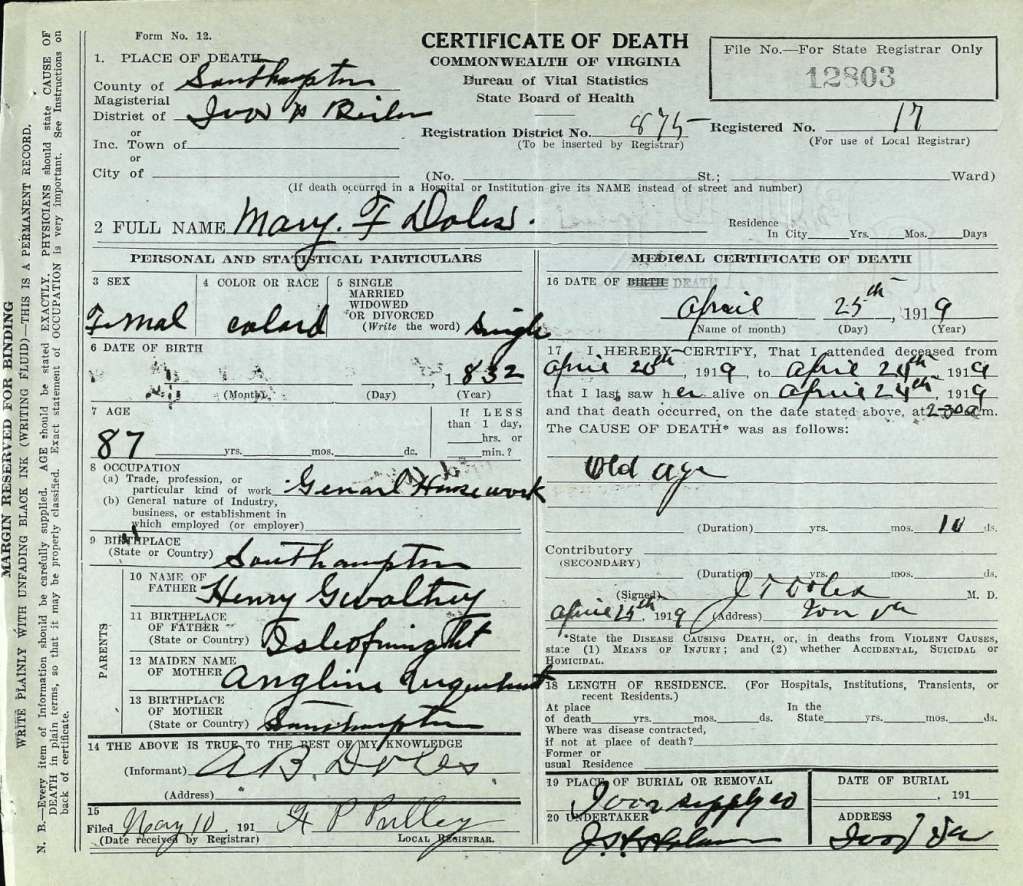 Form No. 12.
CERTIFICATE OF DEATH
COMMONWEALTH OF VIRGINIA
Bureau of Vital Statistics
State Board of Health
File No.—For State Registrar Only
12803
1. PLACE OF DEATH
County of Southampton
Magisterial District of Ivor
or
Inc. Town of
or
City of
Registration District No. 875
(To be inserted by Registrar)
Registered No. 17
(For use of Local Registrar)
(No. St.; Ward)
(If death occurred in a Hospital or Institution give its NAME instead of street and number)
2 FULL NAME Mary. F Doles.
Residence
In City Yrs. Mos. Days
PERSONAL AND STATISTICAL PARTICULARS
3 SEX
Femal
4 COLOR OR RACE
colard
5 SINGLE MARRIED WIDOWED OR DIVORCED
(Write the word) Single
6 DATE OF BIRTH
, 1832
(Month) (Day) (Year)
7 AGE
87 yrs. mos. ds.
If LESS than 1 day, hrs. or min.?
8 OCCUPATION
(a) Trade, profession, or
particular kind of work Genarl House work
(b) General nature of Industry,
business, or establishment in
which employed (or employer)
9 BIRTHPLACE
(State or Country) Southampton
PARENTS
10 NAME OF FATHER Henry Gwaltney
11 BIRTHPLACE OF FATHER
(State or Country) Isleofwight
12 MAIDEN NAME OF MOTHER Angline
13 BIRTHPLACE OF MOTHER
(State or Country) Southampton
14 THE ABOVE IS TRUE TO THE BEST OF MY KNOWLEDGE
(Informant) A B. Doles
(Address)
15
Filed May 10, 191 P Pulley
(Date received by Registrar) LOCAL REGISTRAR.
MEDICAL CERTIFICATE OF DEATH
16 DATE OF BIRTH DEATH
April 25th, 1919
(Name of month) (Day) (Year)
17 I HEREBY CERTIFY, That I attended deceased from
April 20th, 1919, to April 24th, 1919
that I last saw her alive on April 24th, 1919
and that death occurred, on the date stated above, at 2-30 a m.
The CAUSE OF DEATH* was as follows:
Old age
(Duration) yrs. mos. 10 ds.
Contributory
(SECONDARY)
(Duration) yrs. mos. ds.
(Signed) J T Doles M. D.
April 25th, 1919 (Address) Ivor Va
*State the DISEASE CAUSING DEATH, or, in deaths from VIOLENT CAUSES,
state (1) MEANS OF INJURY; and (2) whether ACCIDENTAL, SUICIDAL or
HOMICIDAL.
18 LENGTH OF RESIDENCE. (For Hospitals, Institutions, Transients, or
recent Residents.)
At place In the
of death yrs. mos. ds. State yrs. mos. ds.
Where was disease contracted,
if not at place of death?
Former or
usual Residence
19 PLACE OF BURIAL OR REMOVAL
Ivor supply co
DATE OF BURIAL
, 191
20 UNDERTAKER
ADDRESS
Ivor Va
MARGIN RESERVED FOR BINDING
WRITE PLAINLY WITH UNFADING BLACK INK (WRITING FLUID)—THIS IS A PERMANENT RECORD.
N. B.—Every item of Information should be carefully supplied. AGE should be stated EXACTLY. PHYSICIANS should state CAUSE OF
DEATH in plain terms, so that it may be properly classified. Exact statement of OCCUPATION is very important. See Instructions on
back of certificate.